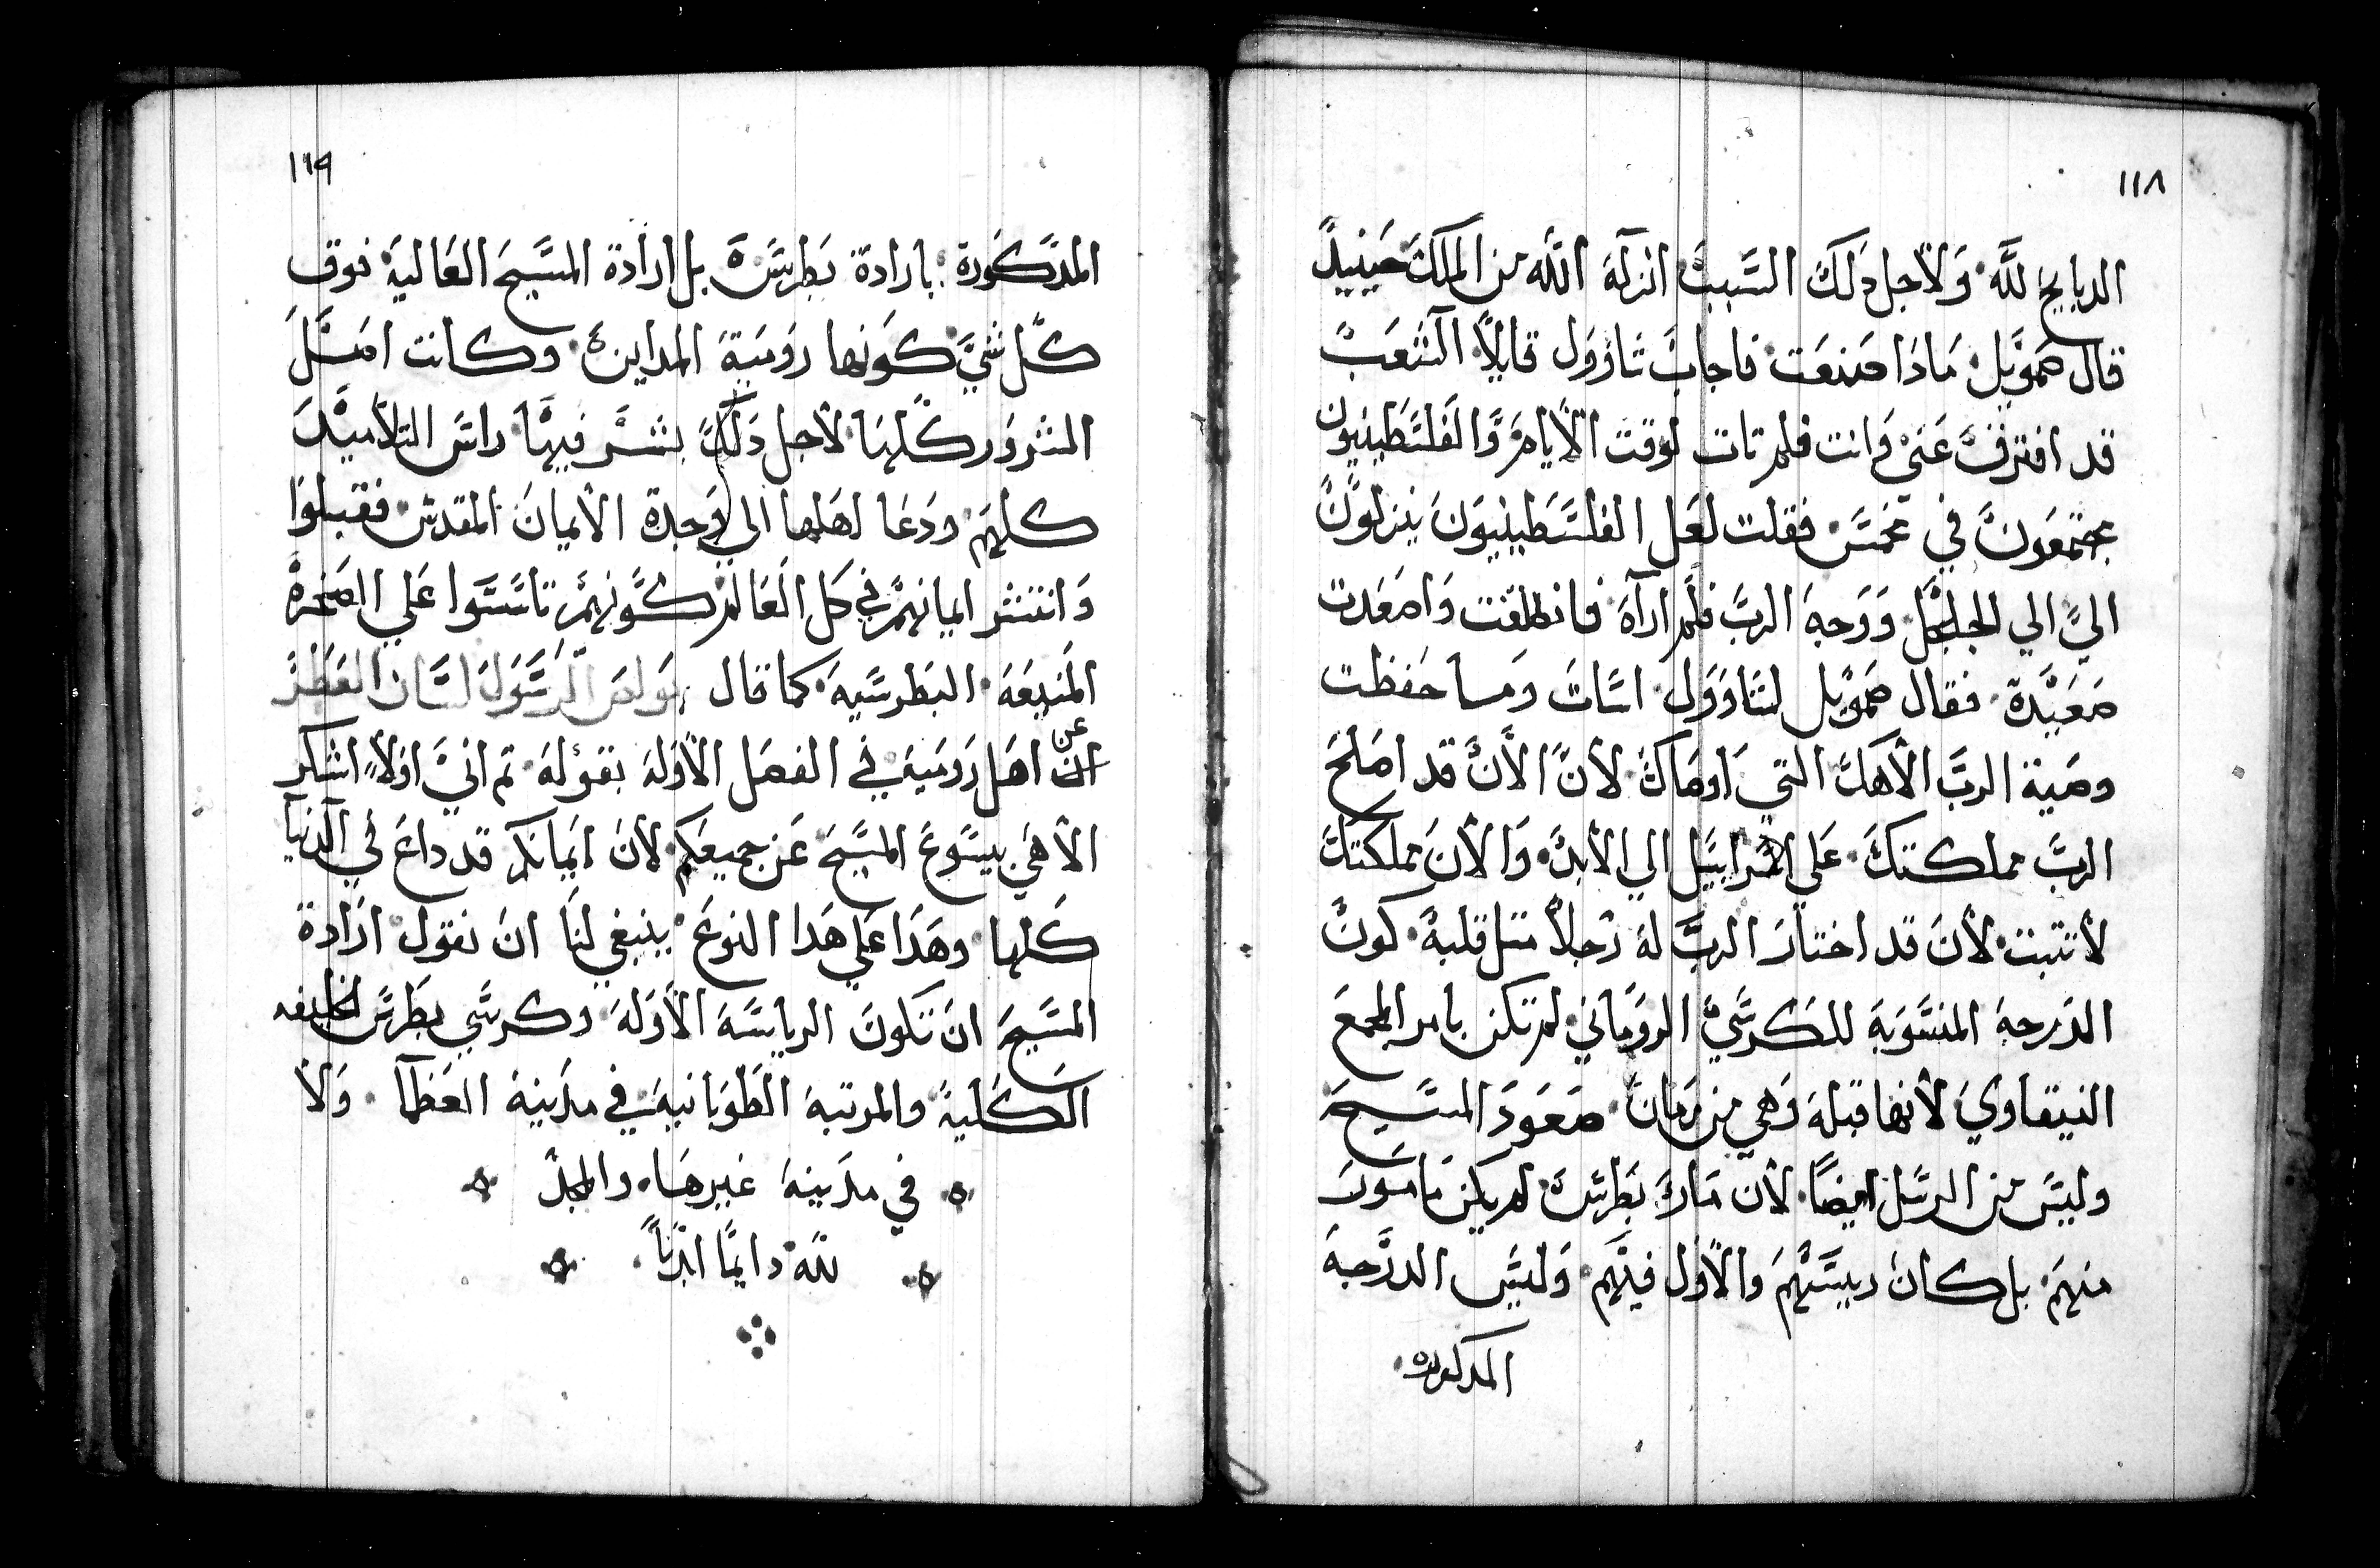 ١١٨
الدبايح لله ولاجل دلك السبب انزله الله من الملك حينيدً
قال صمويل مادا صنعت فاجاب شاوول قايلاً الشعب
قد افترق عني وانت فلم تات لوقت الايام والفلسطينيون
مجتمعون في مخمس فقلت لعل الفلسطينيون ينزلون
اليّ الي الجلجل ووجه الرب فلم اراه فانطلقت واصعدت
صعيدة فقال صمويل لشاوول اسات وما حفظت
وصية الرب الاهك التي اوصاك لان الان قد اصلح
الرب مملكتك علي اسراييل الي الابد والان مملكتك
لا تتبت لان قد اختار الرب له رجلاً متل قلبه كون
الدرجة المنسوبة للكرسي الروماني لم تكن بامر المجمع
النيقاوي لانها قبله وهي من زمان صعود المسيح
وليس من الرسل ايضاً لان مار بطرس لم يكن مامور
منهم بل كان رييسهم والاول فيهم وليس الدرجة
المدكورة
١١٩
المدكورة بارادة بطرس بل ارادة المسيح العالية فوق
كل شي كونها رومية المداين وكانت امسل
الشرور كلها لاجل دلك بشر فيها راس التلاميد
كلهم ودعا اهلها الي وحدة الايمان المقدس فقبلوا
وانتشر ايمانهم في كل العالم كونهم تاسسوا علي الصخرة
المنيعة البطرسية كما قال بولص الرسول لسان العطر
عن
ان اهل رومية في الفصل الاوله بقوله تم اني اولاً اشكر
الاهي بيسوع المسيح عن جميعكم لان ايمانكم قد داع في الدنيا
كلها وهدا علي هدا النوع ينبغي لنا ان نقول ارادة
المسيح ان تكون الرياسة الاوله وكرسي بطرس الخليفه
الكلية والمرتبة الطوبانية في مدينة العظما ولا
في مدينة غيرها والمجد
لله دايمًا ابدًا